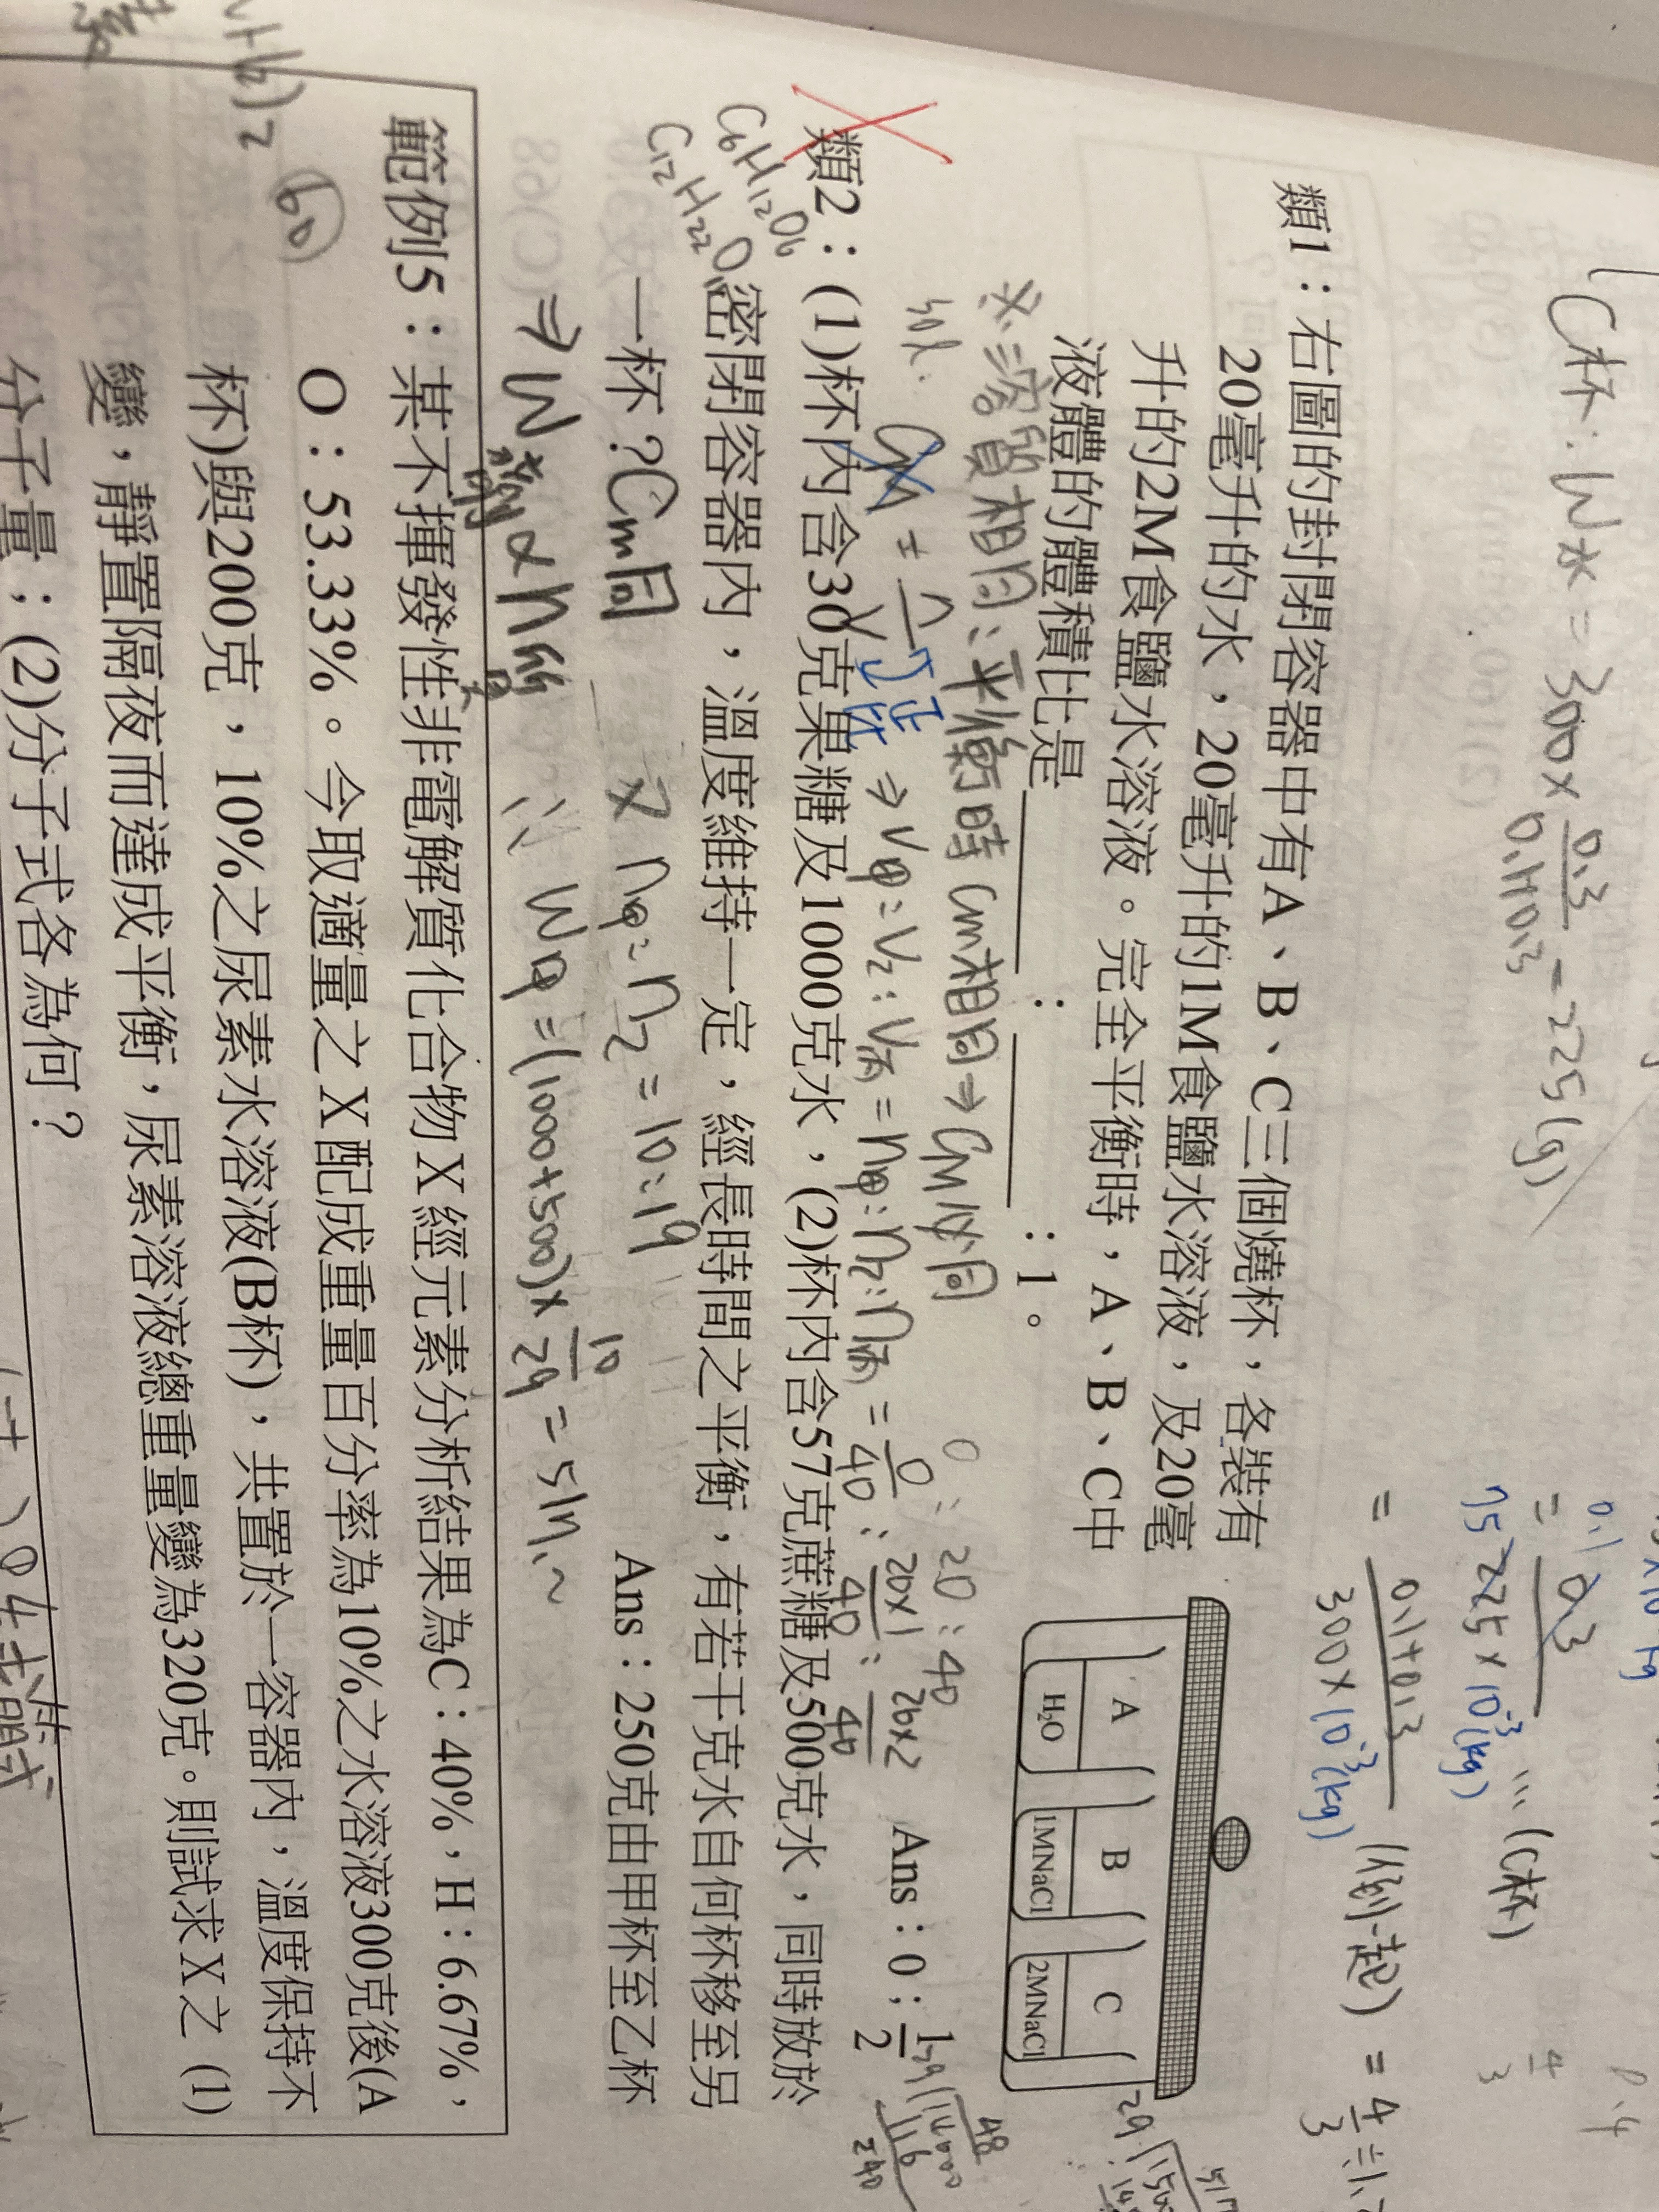 C杯：W水 = 300 × 0.3/0.1+0.3 = 225(g)
= 0.1+0.3/300×10⁻³(kg) (倒一起) = 4/3
75 225×10⁻³(kg) … (C杯)
類1：右圖的封閉容器中有A、B、C三個燒杯，各裝有
20毫升的水，20毫升的1M食鹽水溶液，及20毫
升的2M食鹽水溶液。完全平衡時，A、B、C中
液體的體積比是______：______：1。
A
B
C
H₂O
1MNaCl
2MNaCl
※三溶質相同：平衡時Cm相同⇒CM必同
0 : 20 : 40
Ans：0；1/2
類2：(1)杯內含30克果糖及1000克水，(2)杯內含57克蔗糖及500克水，同時放於
密閉容器內，溫度維持一定，經長時間之平衡，有若干克水自何杯移至另
一杯？
Ans：250克由甲杯至乙杯
C₆H₁₂O₆
C₁₂H₂₂O₁₁
Cm同
又 n甲：n乙 = 10：19
⇒ W水 ∝ n溶質
∴ W甲 = (1000+500)× 10/29 = 517.~
範例5：某不揮發性非電解質化合物X經元素分析結果為C：40%，H：6.67%，
O：53.33%。今取適量之X配成重量百分率為10%之水溶液300克後(A
杯)與200克，10%之尿素水溶液(B杯)，共置於一容器內，溫度保持不
變，靜置隔夜而達成平衡，尿素溶液總重量變為320克。則試求X之 (1)
分子量；(2)分子式各為何？
60